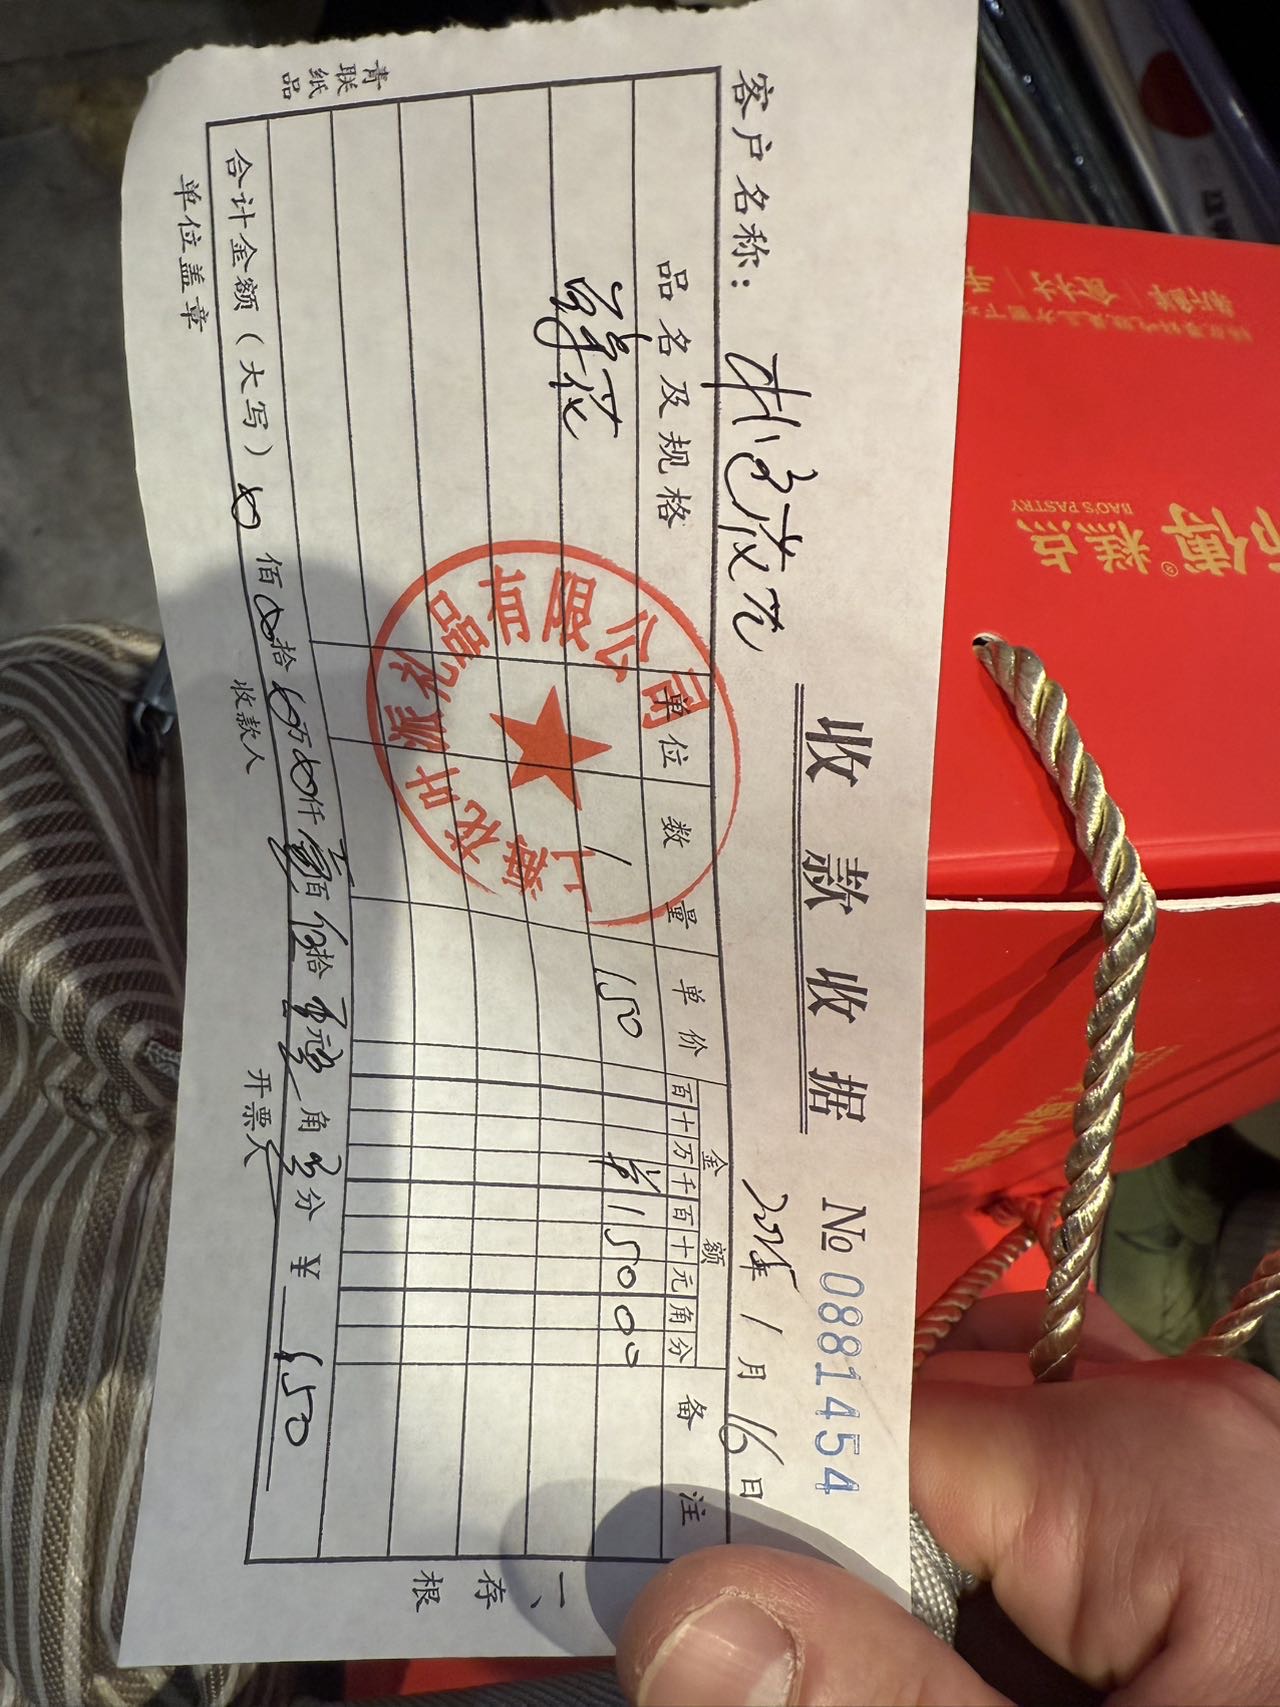 收款收据
№ 0881454
客户名称：
1月16日
品名及规格 单位 数量 单价 金额 备注
百十万千百十元角分
鲜花 1 150 ¥15000
合计金额（大写） 佰 拾 万 仟 壹佰 伍拾 零元 角 分 ¥ 150
单位盖章 收款人 开票人
青联纸品
一、存根
上海花叶派礼品有限公司
糕点
BAO'S PASTRY
新鲜
食材